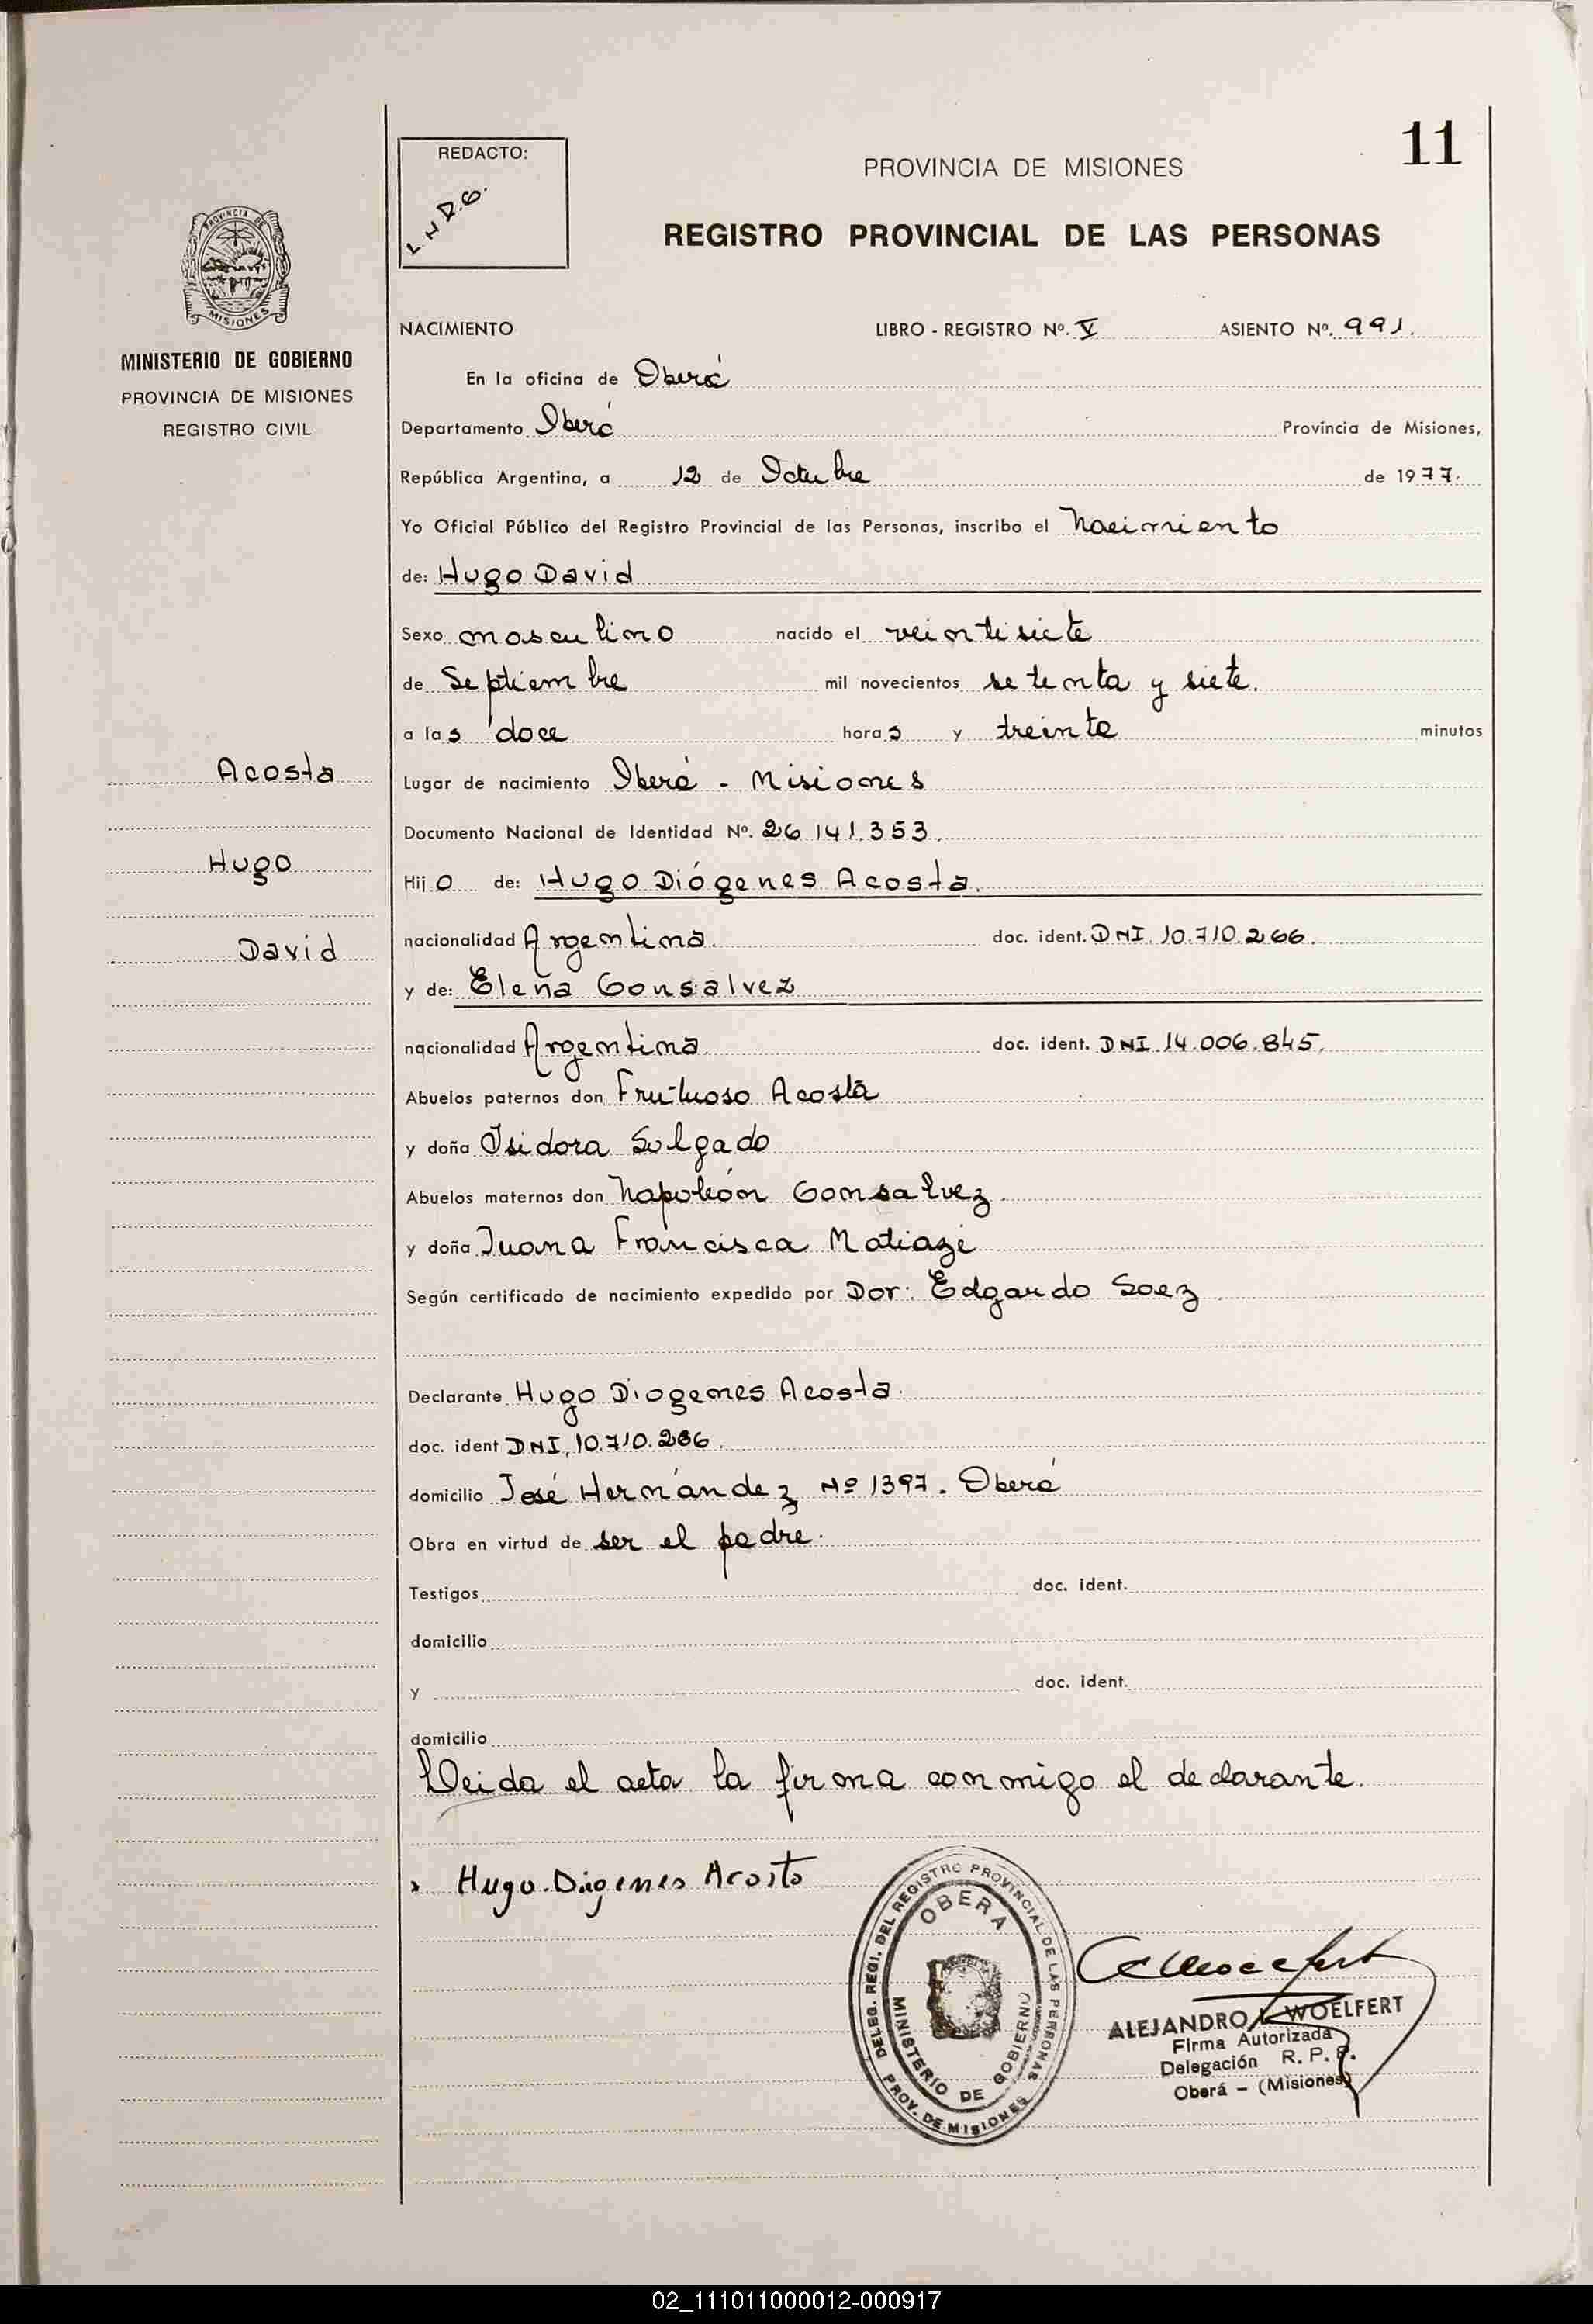 11
REDACTO:
L. H. D. G.
PROVINCIA DE MISIONES
REGISTRO PROVINCIAL DE LAS PERSONAS
PROVINCIA DE
MISIONES
MINISTERIO DE GOBIERNO
PROVINCIA DE MISIONES
REGISTRO CIVIL
NACIMIENTO LIBRO - REGISTRO Nº. V ASIENTO Nº. 991.
En la oficina de Oberá
Departamento Oberá Provincia de Misiones,
República Argentina, a 12 de Octubre de 1977.
Yo Oficial Público del Registro Provincial de las Personas, inscribo el Nacimiento
de: Hugo David
Sexo masculino nacido el veintisiete
de Septiembre mil novecientos setenta y siete.
a las doce horas y treinta minutos
Acosta
Hugo
David
Lugar de nacimiento Oberá - Misiones
Documento Nacional de Identidad Nº. 26.141.353.
Hijo de: Hugo Diógenes Acosta.
nacionalidad Argentina. doc. ident. DNI. 10.710.266.
y de: Elena Gonsalvez
nacionalidad Argentina. doc. ident. DNI. 14.006.845.
Abuelos paternos don Frutuoso Acosta
y doña Isidora Solgado
Abuelos maternos don Napoleón Gonsalvez.
y doña Juana Francisca Matiaze
Según certificado de nacimiento expedido por Dor: Edgardo Saez.
Declarante Hugo Diogenes Acosta.
doc. ident DNI, 10.710.266.
domicilio José Hernández Nº 1397. Oberá
Obra en virtud de ser el padre.
Testigos doc. ident.
domicilio
y doc. ident.
domicilio
Leida el acta la firma conmigo el declarante.
Hugo Diogenes Acosta
DELEG. REGI. DEL REGISTRO PROVINCIAL DE LAS PERSONAS
OBERA
MINISTERIO DE GOBIERNO
PROV. DE MISIONES
ALEJANDRO WOELFERT
Firma Autorizada
Delegación R. P. P.
Oberá - (Misiones)
02_111011000012-000917